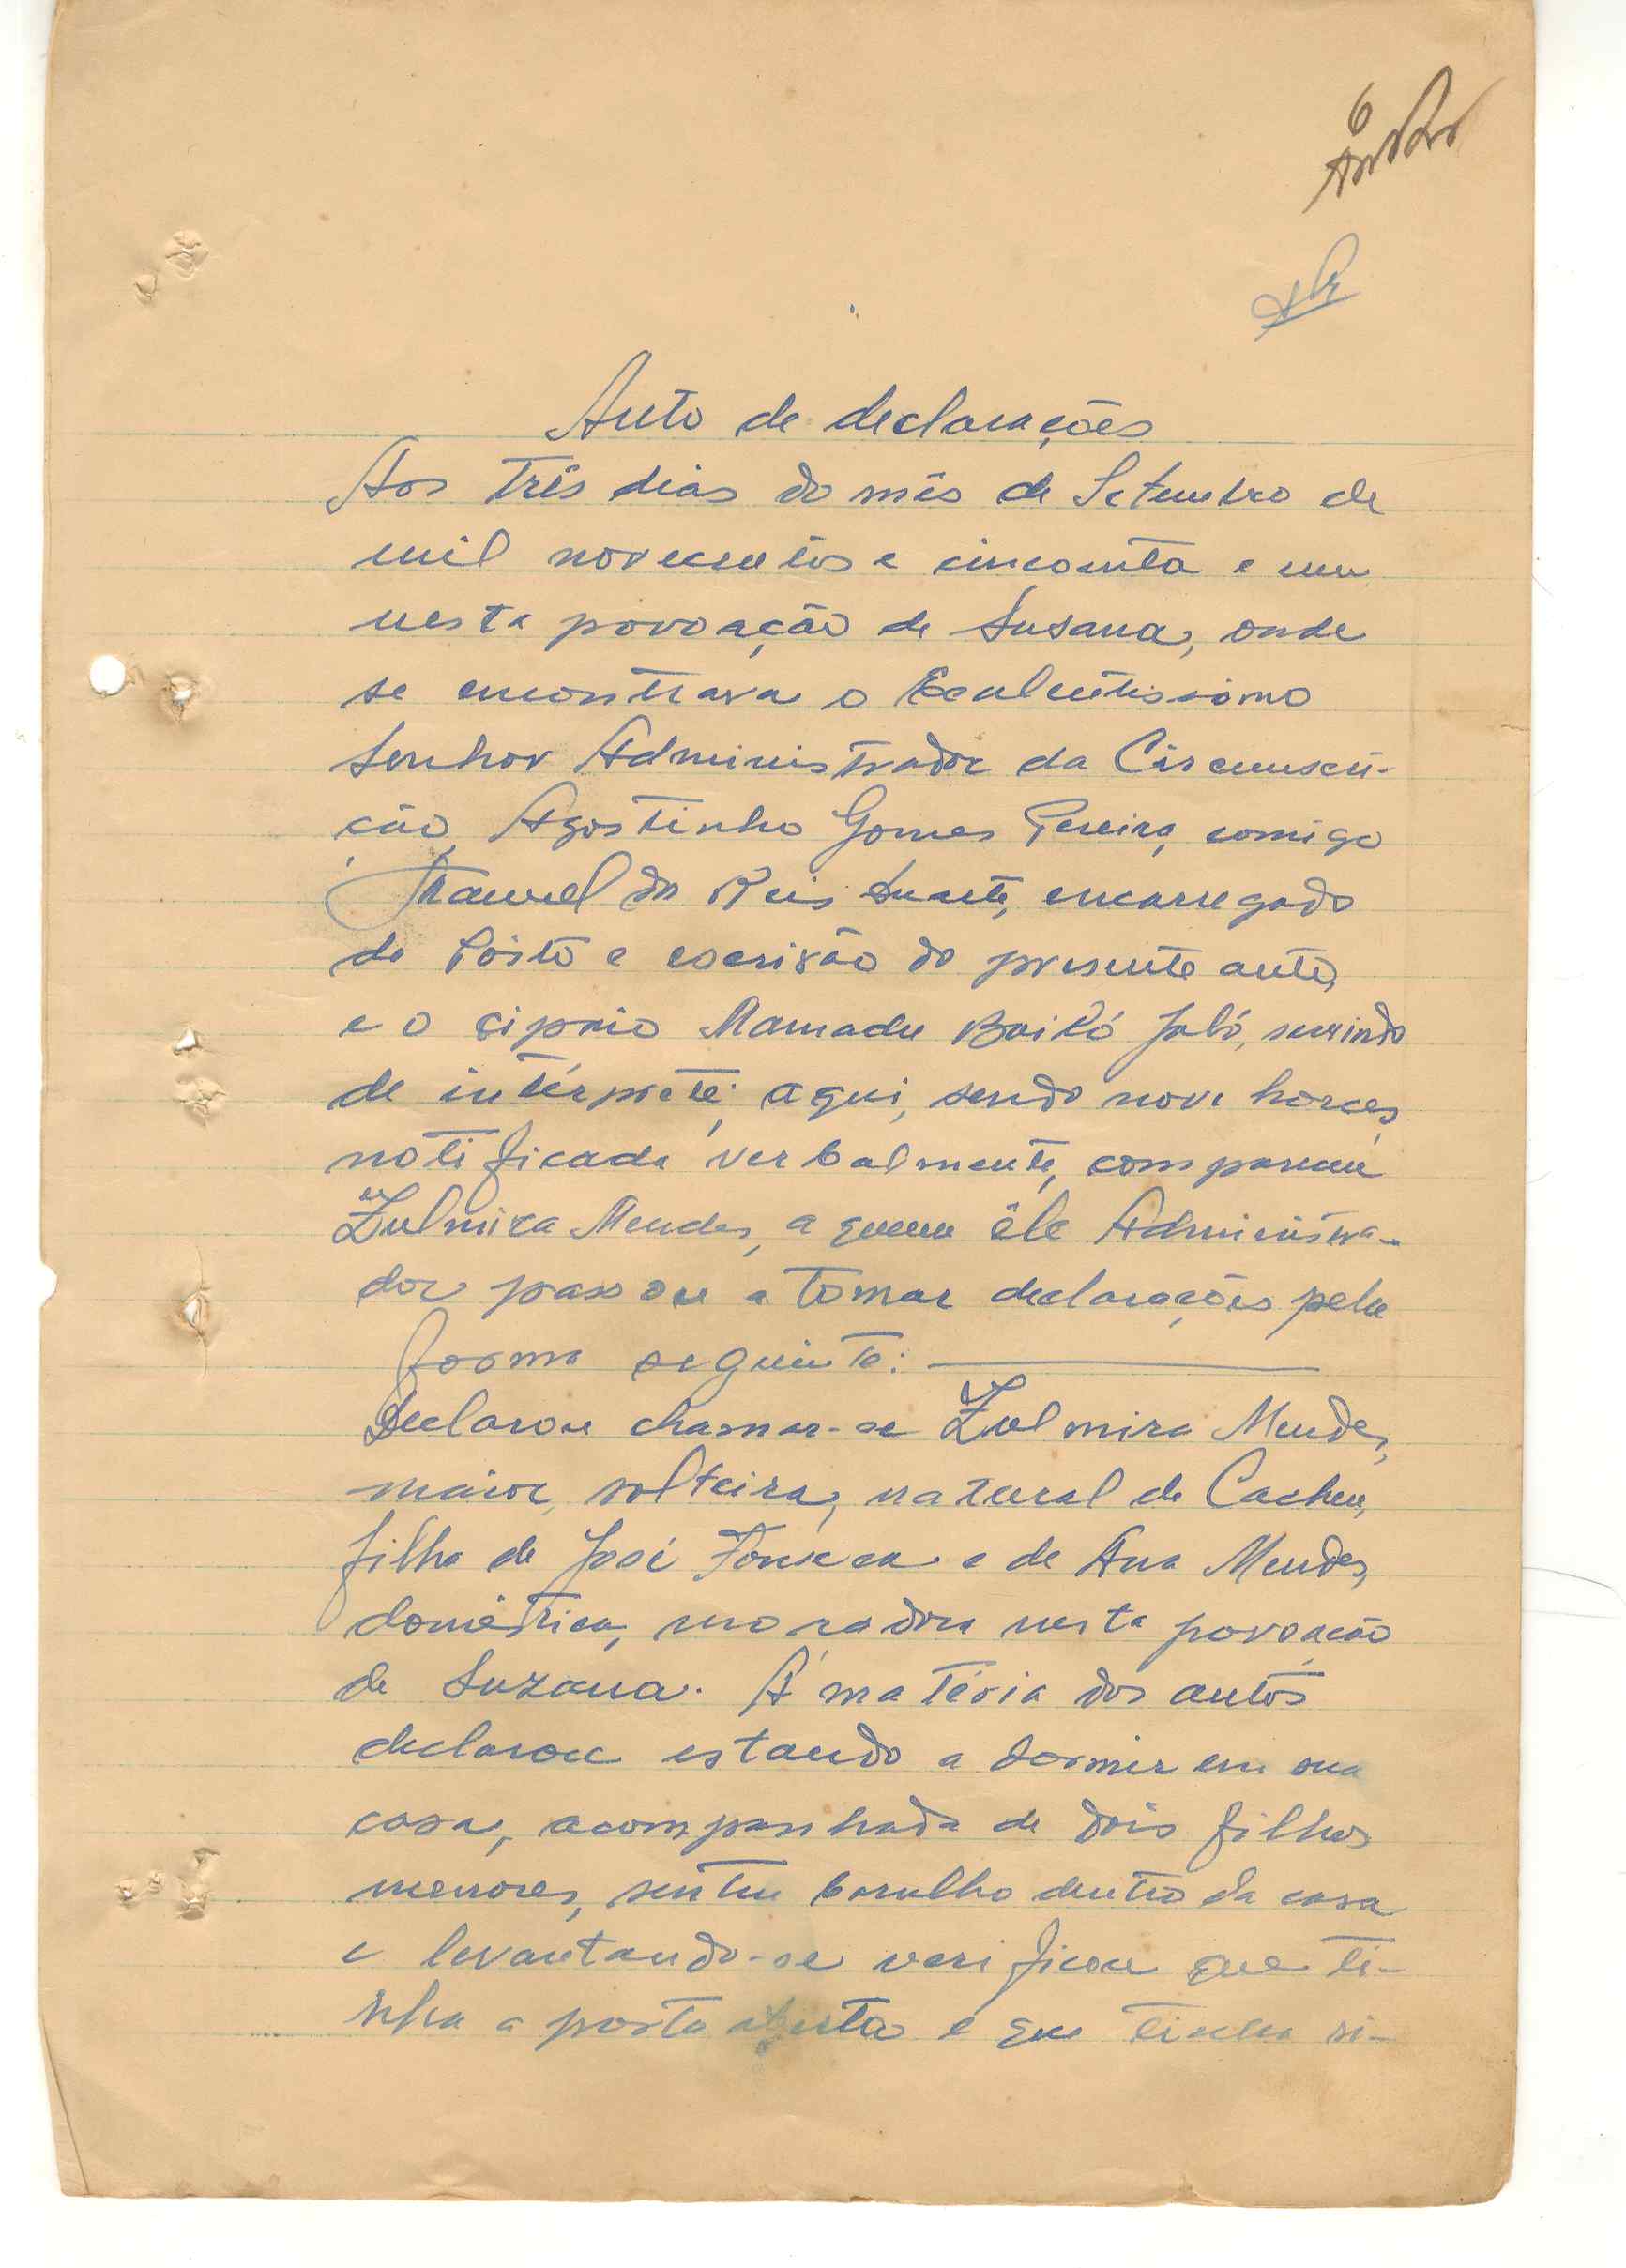 6
Auto de declarações
Aos três dias do mês de Setembro de
mil novecentos e cincoenta e um
nesta povoação de Susana, onde
se encontrava o Excelentissimo
Senhor Administrador da Circunscri-
ção, Agostinho Gomes Pereira, comigo
Manuel dos Reis Duarte, encarregado
do Pôsto e escrivão do presente auto,
e o cipaio Mamadu Bailó Jaló, servindo
de intérprete, aqui, sendo nove horas,
notificada verbalmente, compareceu
Zulmira Mendes, a quem êle Administra-
dor passou a tomar declarações pela
forma seguinte:
Declarou chamar-se Zulmira Mendes,
maior, solteira, natural de Cacheu,
filha de José Fonseca e de Ana Mendes,
doméstica, moradora nesta povoação
de Suzana. Á matéria dos autos
declarou estando a dormir em sua
casa, acompanhada de dois filhos
menores, sentiu barulho dentro da casa
e levantando-se verificou que ti-
nha a porta aberta e que tinha si-